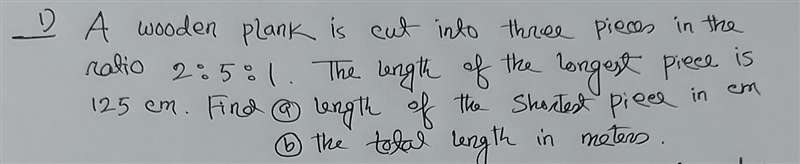 1) A wooden plank is cut into three pieces in the
ratio 2:5:1. The length of the longest piece is
125 cm. Find ⓐ length of the shortest piece in cm
ⓑ the total length in meters.